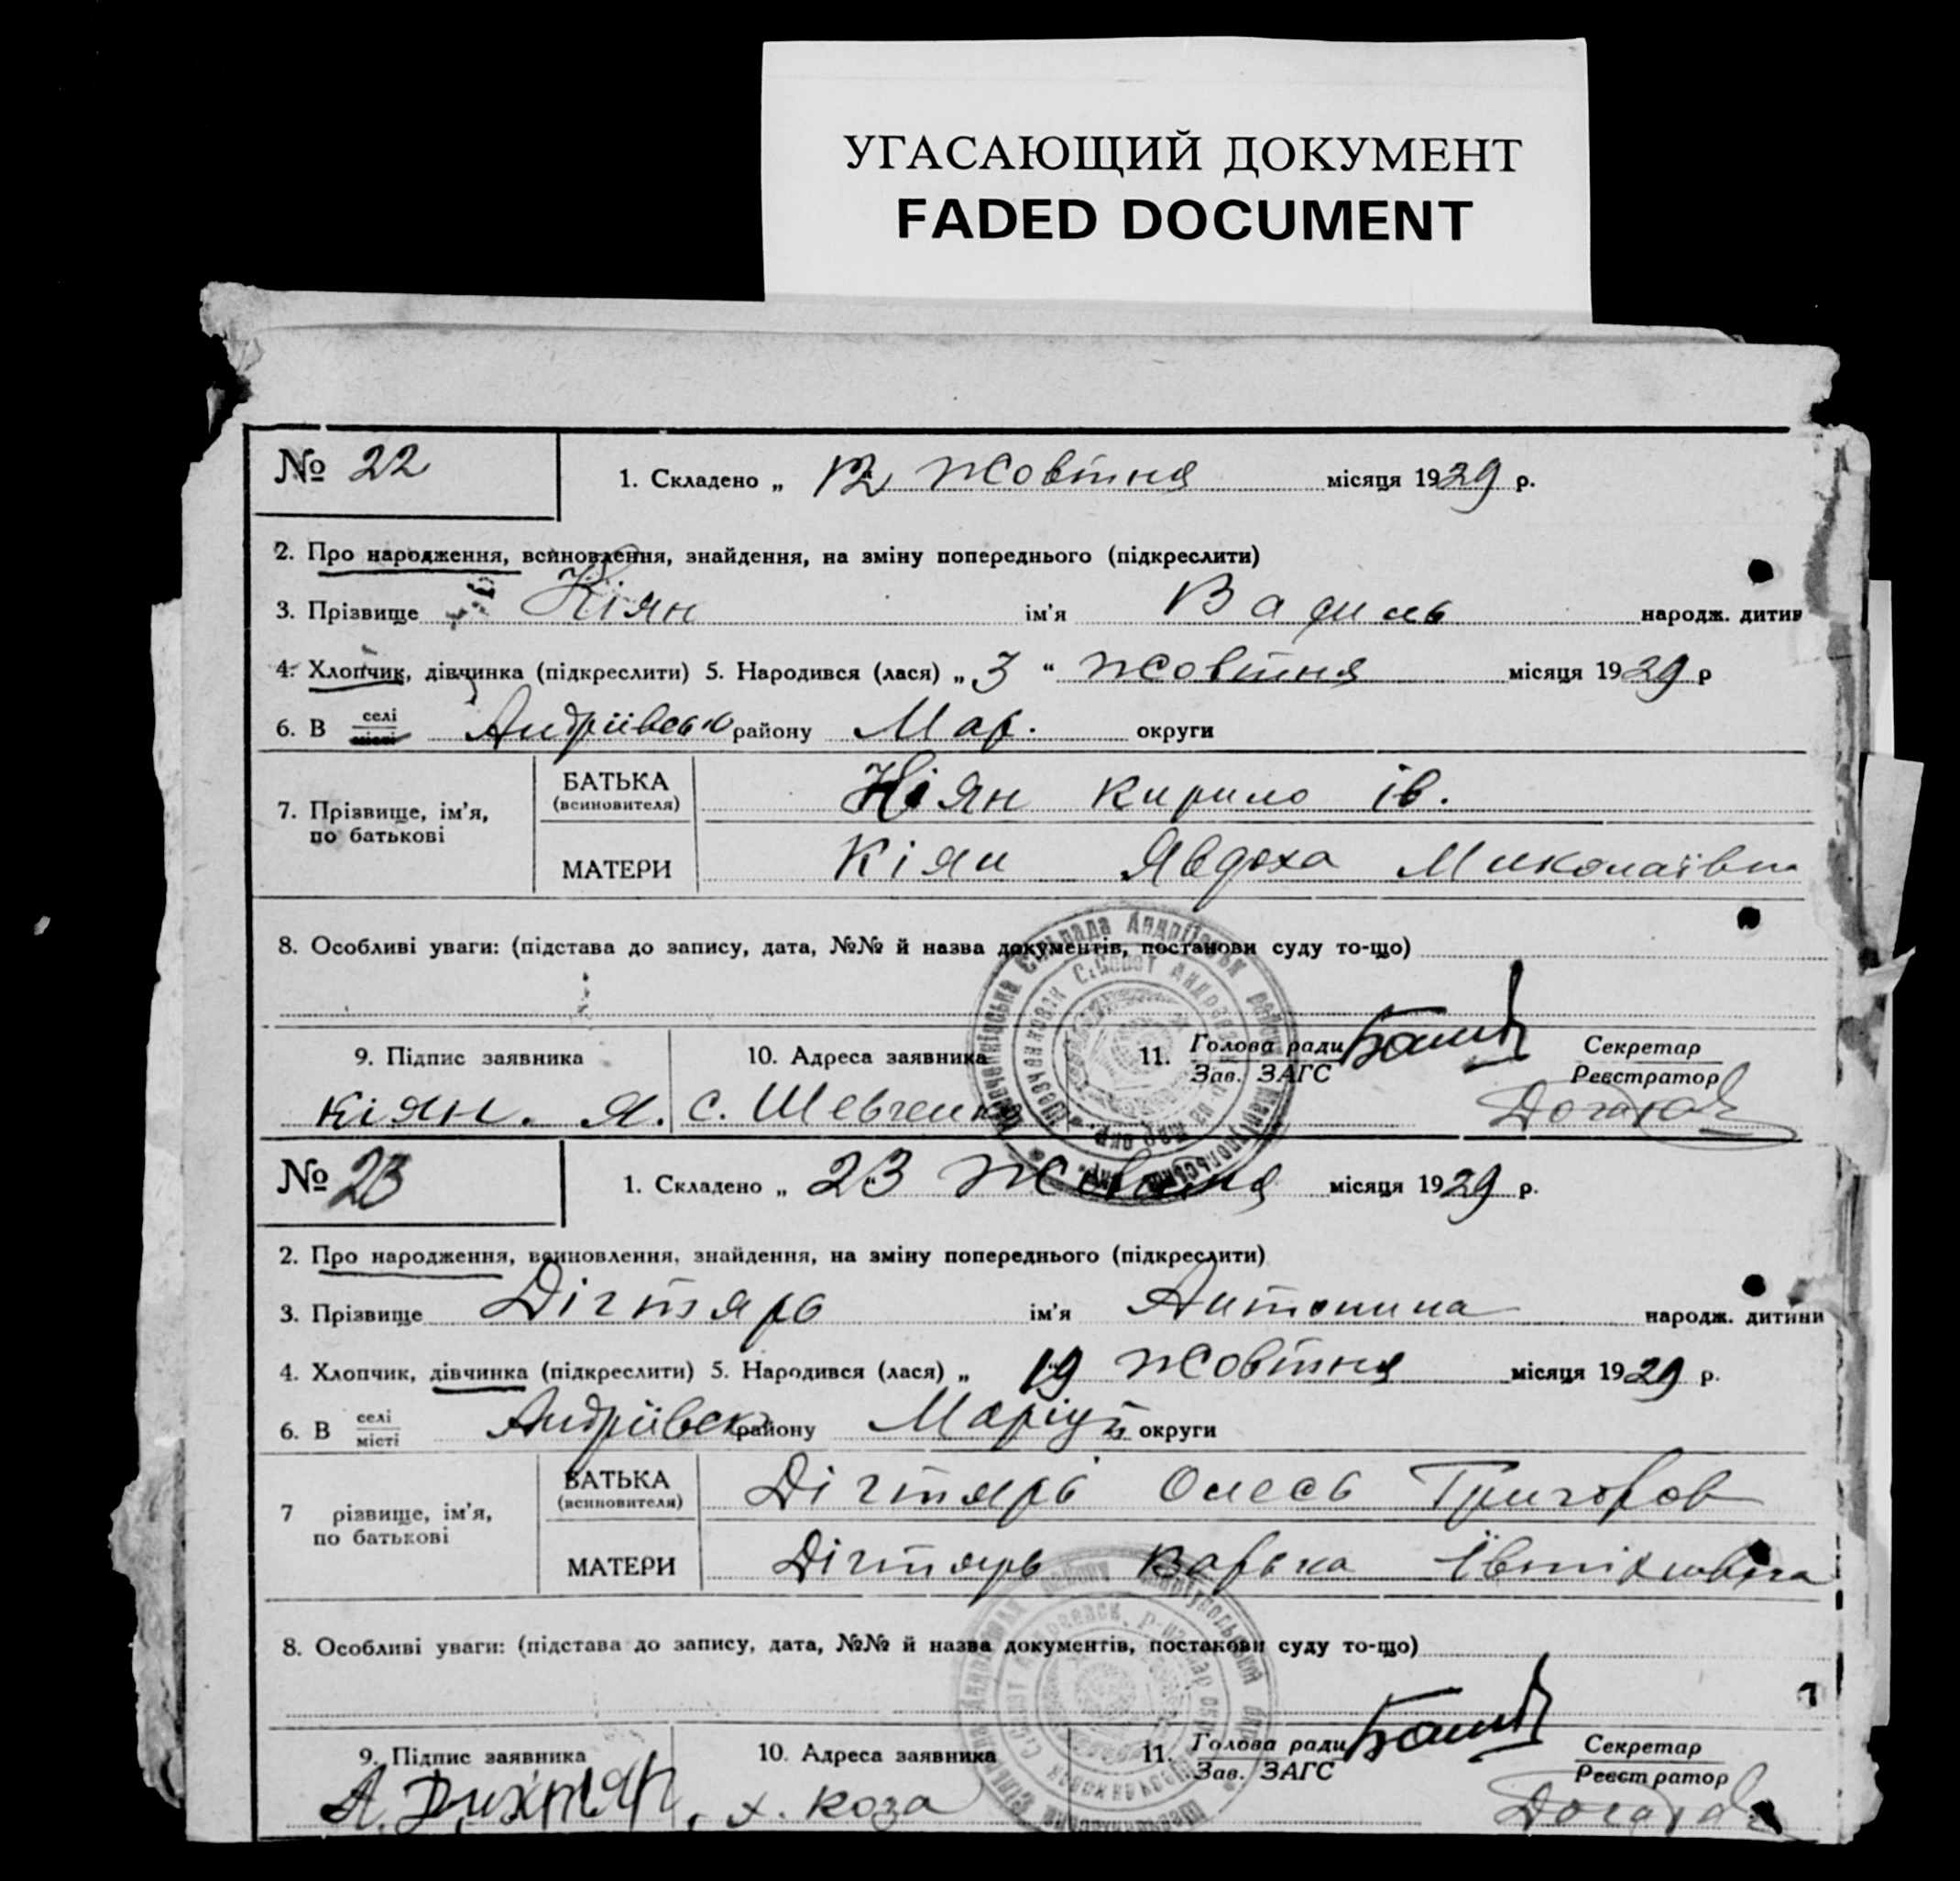 УГАСАЮЩИЙ ДОКУМЕНТ
FADED DOCUMENT
№ 22
1. Складено „ 12 " Жовтня місяця 1929 р.
2. Про народження, всиновлення, знайдення, на зміну попереднього (підкреслити)
3. Прізвище Кіян ім'я Василь народж. дитин
4. Хлопчик, дівчинка (підкреслити) 5. Народився (лася) „ 3 " Жовтня місяця 1929 р
6. В селі місті Андріївськ району Мар. округи
7. Прізвище, ім'я, по батькові
БАТЬКА (всиновителя) Кіян Кирило Ів.
МАТЕРИ Кіян Явдоха Миколаївна
8. Особливі уваги: (підстава до запису, дата, №№ й назва документів, постанови суду то-що)
9. Підпис заявника 10. Адреса заявника 11. Голова ради Секретар
Зав. ЗАГС Реєстратор
Кіян. Я. с. Шевченко
№ 23
1. Складено „ 23 " Жовтня місяця 1929 р.
2. Про народження, всиновлення, знайдення, на зміну попереднього (підкреслити)
3. Прізвище Дігтярь ім'я Антонина народж. дитини
4. Хлопчик, дівчинка (підкреслити) 5. Народився (лася) „ 19 " Жовтня місяця 1929 р.
6. В селі місті Андріївськ району Маріуп округи
7 різвище, ім'я, по батькові
БАТЬКА (всиновителя) Дігтярь Олесь Григоров
МАТЕРИ Дігтярь Варька
8. Особливі уваги: (підстава до запису, дата, №№ й назва документів, постанови суду то-що)
9. Підпис заявника 10. Адреса заявника 11. Голова ради Секретар
Зав. ЗАГС Реєстратор
А. Дихтяр. х. Коза